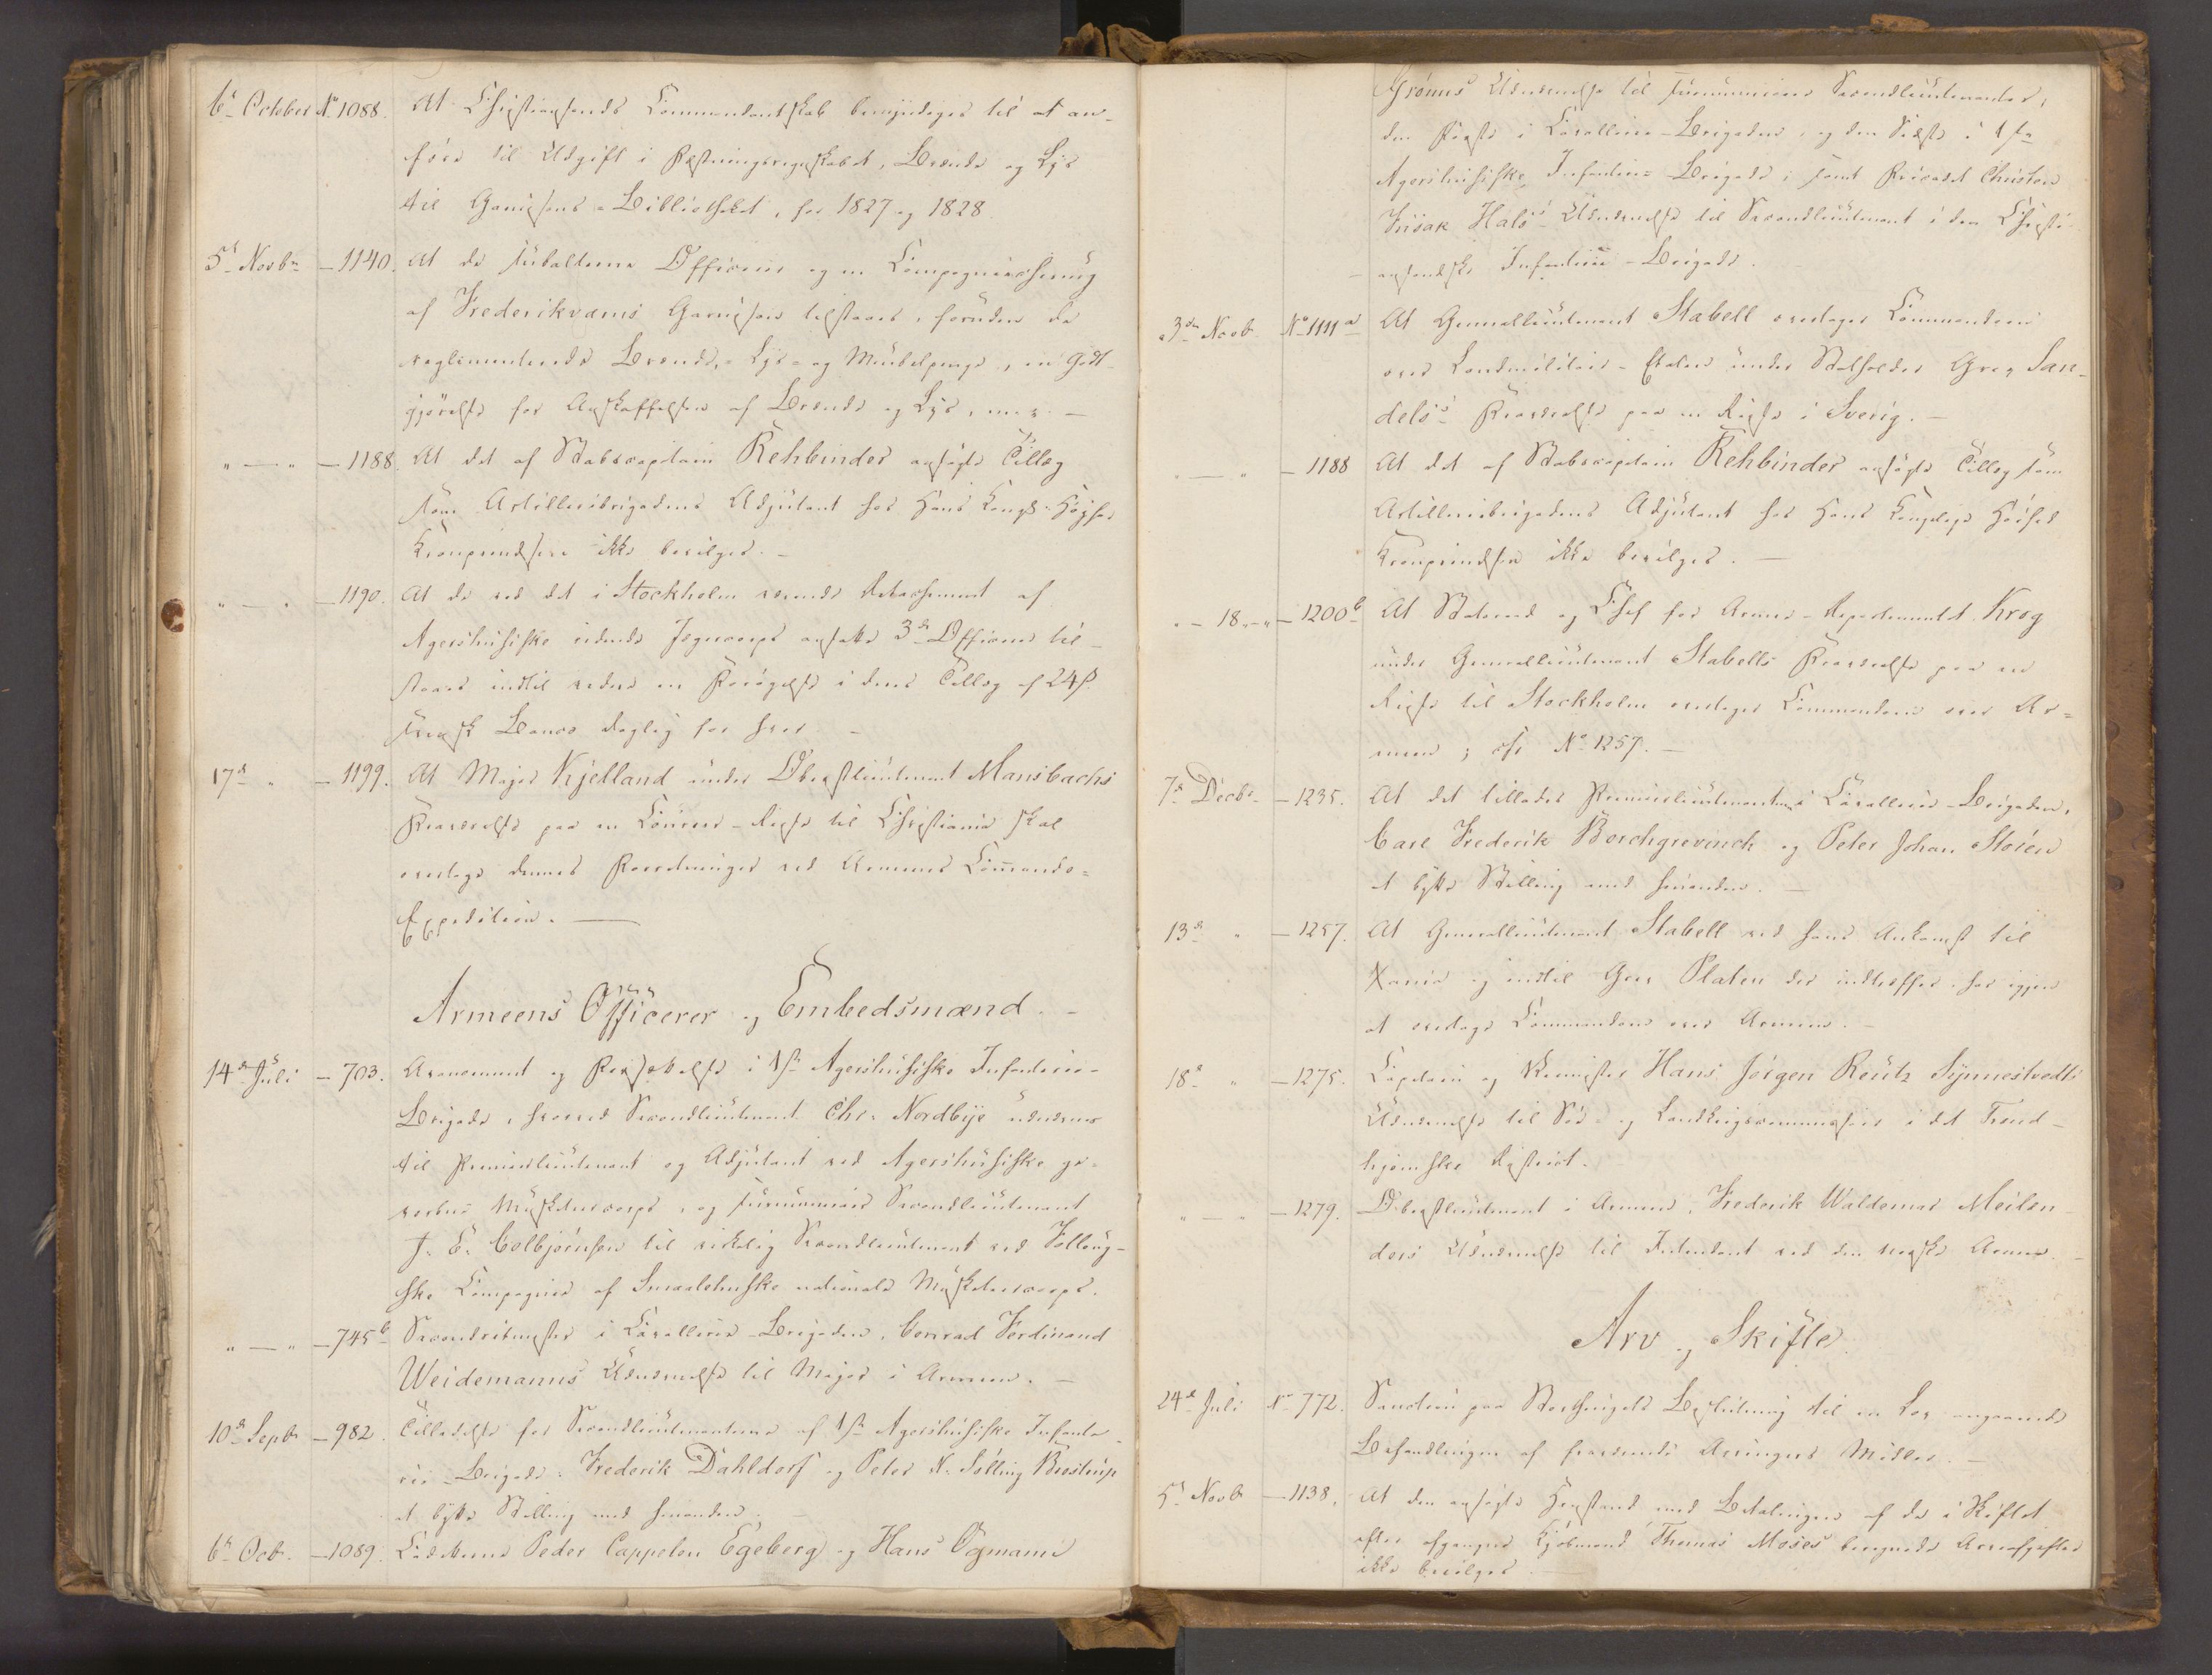 6te October No 1088. At Christiansands Commandantskab bemyndiges til at an-
føre til Udgift i Fæstningsregnskabet, Brænde og Lys
til Garnisons-Bibliotheket, for 1827 og 1828.
5te Novbr — 1140. At de subalterne Officerer og en Compagniechirurg
af Frederiksværns Garnison tilstaaes, foruden de
reglementerede Brænde-, Lys- og Meubelpenge, en Godt-
gjørelse for Anskaffelsen af Brænde og Lys, m. v. —
" — " — 1188. At det af Stabscapitain Rehbinder ansøgte Tillæg
som Artilleribrigadens Adjutant hos Hans Kongl: Højhed
Kronprindsen ikke bevilges. —
" — " — 1190. At de ved det i Stockholm værende Detachement af
Agershusiske ridende Jegercorps ansatte 3de Officerer til-
staaes indtil videre en Forøgelse i deres Tillæg af 24 s
svensk Banco daglig for hver. —
17de " — 1199. At Major Kjelland under Oberstlieutenant Mansbachs
Fraværelse paa en Coureer-Reise til Christiania skal
overtage dennes Forretninger ved Armeens Commando-
Expedition. —
Armeens Officerer og Embedsmænd. —
14de Juli — 703. Avancement og Forsættelse i 1ste Agershusiske Infanterie-
Brigade, hvorved Secondlieutenant Chr. Nordbye udnævnes
til Premierlieutenant og Adjutant ved Agershusiske ge-
vorbne Musketeercorps, og surnumerair Secondlieutenant
J. E. Colbjørnsen til virkelig Secondlieutenant ved Folloug-
ske Compagnie af Smaalehnske nationale Musketeercorps.
" — " — 745b Secondritmester i Cavallerie-Brigaden, Conrad Ferdinand
Weidemanns Udnævnelse til Major i Armeen. —
10de Septbr — 982. Tilladelse for Secondlieutenanterne af 1ste Agershusiske Infante-
rie-Brigade: Frederik Dahldorf og Peter N. Sølling Brostrup
at bytte Stilling med hinanden. —
6te Octbr. — 1089. Cadetterne Peder Cappelen Egeberg og Hans Ögmann
Grønns Udnævnelse til surnumeraire Secondlieutenanter,
den første i Cavallerie-Brigaden, og den Sidste i 1ste
Agershusiske Infanterie-Brigade; samt Fricadet Christen
Friisak Hals's Udnævnelse til Secondlieutenant i den Christi-
ansandske Infanterie-Brigade.
3die Novb No 1111a At Generallieutenant Stabell overtager Commandoen
over Landmilitair-Etaten under Statholder Grev San-
dels's Fraværelse paa en Reise i Sverig. —
" — " — 1188 At det af Stabscapitain Rehbinder ansøgte Tillæg som
Artilleribrigadens Adjutant hos Hans Kongelige Høihed
Kronprindsen ikke bevilges. —
" — 18 — " — 1200b At Statsraad og Chef for Armee-Departementet Krog
under Generallieutenant Stabells Fraværelse paa en
Reise til Stockholm overtager Commandoen over Ar-
meen; cfr No 1257. —
7de Decbr — 1235. At det tillades Premierlieutenanterne i Cavallerie-Brigaden,
Carl Frederik Borchgrevinck og Peter Johan Støren
at bytte Stilling med hinanden. —
13de " — 1257. At Generallieutenant Stabell ved hans Ankomst til
Xania og indtil Grev Platen der indtræffer har igjen
at overtage Commandoen over Armeen. —
18de " — 1275. Capitain og Hans Jørgen Reutz Synnestvedts
Udnævnelse til Sø- og Landkrigscommissair i det Trond-
hjemske District.
" — " — 1279. Oberstlieutenant i Armeen, Frederik Waldemar Meilen-
ders Udnævnelse til Intendant ved den norske Armee. —
Arv og Skifte.
24de Juli No 772. Sanction paa Storthingets Beslutning til en Lov angaaende
Behandlingen af fraværende Arvingers Midler. —
5te Novb — 1138. At den ansøgte Henstand med Betalingen af de i Skiftet
efter afgangne Kjøbmand Thomas Moses beregnede Arveafgifter
ikke bevilges. —